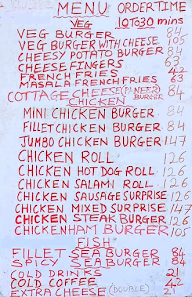 MENU ORDERTIME
VEG 10TO30 mins
VEG BURGER 84
VEG BURGER WITH CHEESE 105
CHEESY POTATO BURGER 84
CHEESE FINGERS 63
FRENCH FRIES
MASALA FRENCH FRIES 63
COTTAGE CHEESE (PANEER) BURGER 84
CHICKEN
MINI CHICKEN BURGER 84
FILLET CHICKEN BURGER 84
JUMBO CHICKEN BURGER 147
CHICKEN ROLL 126
CHICKEN HOT DOG ROLL 126
CHICKEN SALAMI ROLL 126
CHICKEN SAUSAGE SURPRISE 126
CHICKEN MIXED SURPRISE 147
CHICKEN STEAK BURGER 126
CHICKEN HAM BURGER 105
FISH
FILLET SEA BURGER 84
SPICY SEA BURGER 84
COLD DRINKS 21
COLD COFFEE 42
EXTRA CHEESE (DOUBLE) 21